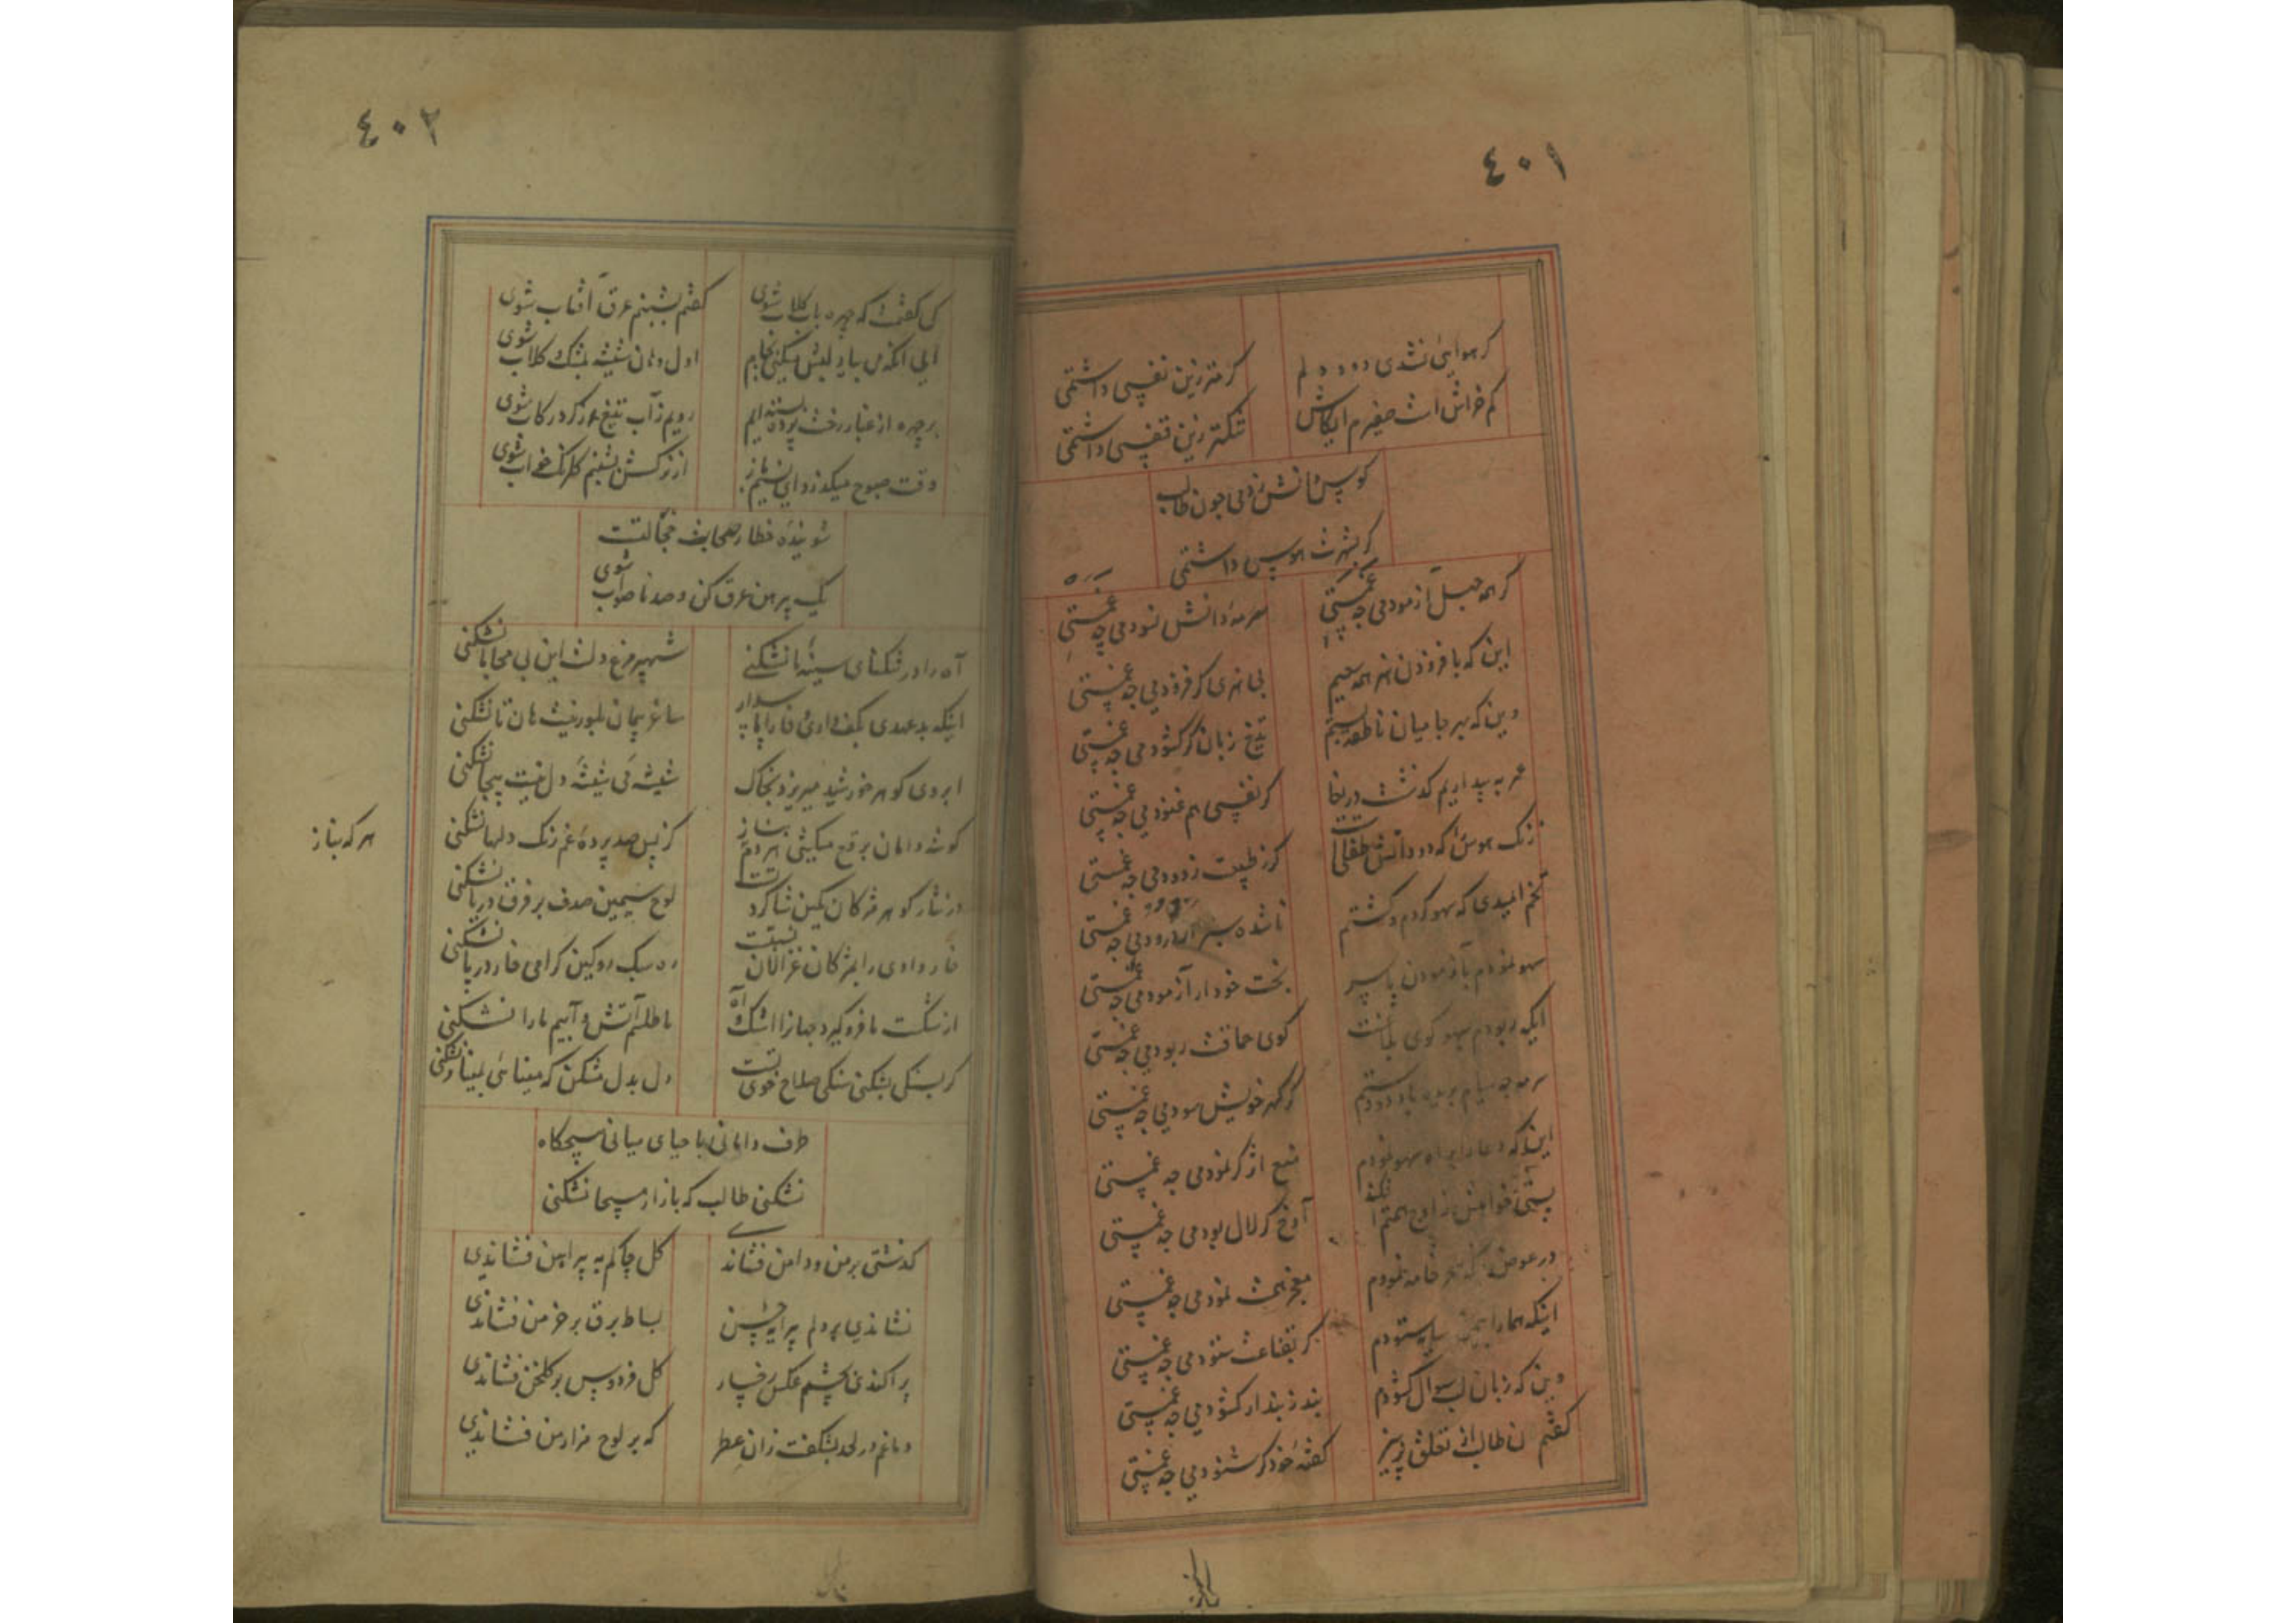 ٤٠١
گر هوایی نشدی دود دلم
گر متر زین نفسی داشتمی
کم خراش است صفیرم ایکاش
تنکتر زین قفسی داشتمی
کوس دانش زدمی چون طالب
گر بشهرت هوس داشتمی
گر همه جهل آزمودمی چه غمستی
سرمهٔ دانش نسودمی چه غمستی
این که بافزودن هنر همه سعیم
بی هنری گر فزودمی چه غمستی
وین که بهر جا میان ناطقه بستم
تیغ زبان گر گشودمی چه غمستی
عمر به بیداریم گذشت دریغا
گر نفسی هم غنودمی چه غمستی
زنگ هوس که دود آتش طفلیست
گر ز طبیعت زدودمی چه غمستی
تخم امیدی که سهو کردم و کشتم
ناشده سبز ار درودمی چه غمستی
سهو نمودم بآزمودن یا سپر
بخت خود ار آزمودمی چه غمستی
ایکه ربودم بسهو گوی بلاغت
گوی حماقت ربودمی چه غمستی
گر گهر خویش سودمی چه غمستی
اینکه دعا را براه سهو نمودم
منع اثر گر نمودمی چه غمستی
پستی خواهش ز اوج همتم افکند
آوخ گر لال بودمی چه غمستی
در عوض خامه نمودم
معجز همت نمودمی چه غمستی
اینکه هما را ستودم
گر بقناعت ستودمی چه غمستی
وین که زبان لب سوال گشودم
بند ز بندار گشودمی چه غمستی
گفتم ن طالب از تعلق پرهیز
گفتهٔ خود گر شنودمی چه غمستی
٤٠٢
کی گفتمت که چهره بآب گلاب شوی
گفتم بشبنم عرق آفتاب شوی
اول دهان شیشه بمشک و گلاب شوی
بر چهره از غبار رخت پرده بسته ایم
رویم ز آب تیغ عرز گرد رکاب شوی
وقت صبوح میگذرد ای نسیم باز
از نرگسش بشبنم گلرنگ خواب شوی
شویندهٔ خطا رصحابت خجالتت
یک پیرهن عرق کن و صد ناصواب شوی
آه را در تنگنای سینهٔ ما نشکنی
شهپر مرغ دلست این بی محابا نشکنی
اینکه بدعهدی بکف داری وفا را پاسدار
ساغر پیمان بلورینست هان تا نشکنی
ابروی گوهر خورشید میریزد بخاک
شیشهٔ می شیشهٔ دل نیست بیجا نشکنی
گوشهٔ دامان برقع میکشی هر دم بناز
کز پس صد پردهٔ غم رنگ دلها نشکنی
هر که بناز
در نثار گوهر مژگان بکین شاگردتست
لوح سیمین صدف بر فرق دریا نشکنی
خار وادی را بمژگان غزالان نسبتست
ره سبک رو کین گرامی خار در پا نشکنی
از شکست ما فرو گیرد جهانرا اشک و آه
ما طلسم آتش و آبیم ما را نشکنی
گر بسنگی بشکنی سنگی صلاح خوی تست
دل بدل مشکن که مینائی بمینا نشکنی
طرف دامانی با حیای میانی هیچگاه
نشکنی طالب که بازار مسیحا نشکنی
گذشتی بر من و دامن فشاندی
گل چاکم به پیراهن فشاندی
نشاندی بر دلم پیرایهٔ حسن
بساط برق بر خرمن فشاندی
پراکندی بچشم عکس رخسار
گل فردوس بر گلخن فشاندی
دماغم در لحد بشکفت زان عطر
که بر لوح مزار من فشاندی